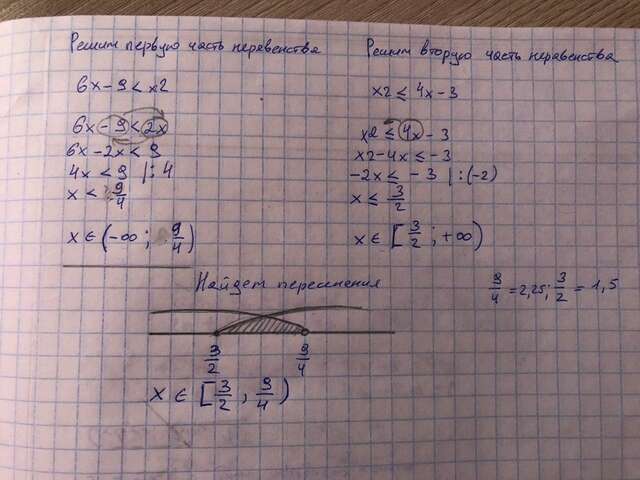 Решим первую часть неравенства
6x-9<x2
6x-9<2x
6x-2x<9
4x<9 |:4
x<9/4
x∈(-∞; 9/4)
Решим вторую часть неравенства
x2≤4x-3
x2≤4x-3
x2-4x≤-3
-2x≤-3 |:(-2)
x≤3/2
x∈[3/2; +∞)
9/4=2,25; 3/2=1,5
Найдем пересичения
3/2 9/4
x∈[3/2; 9/4)